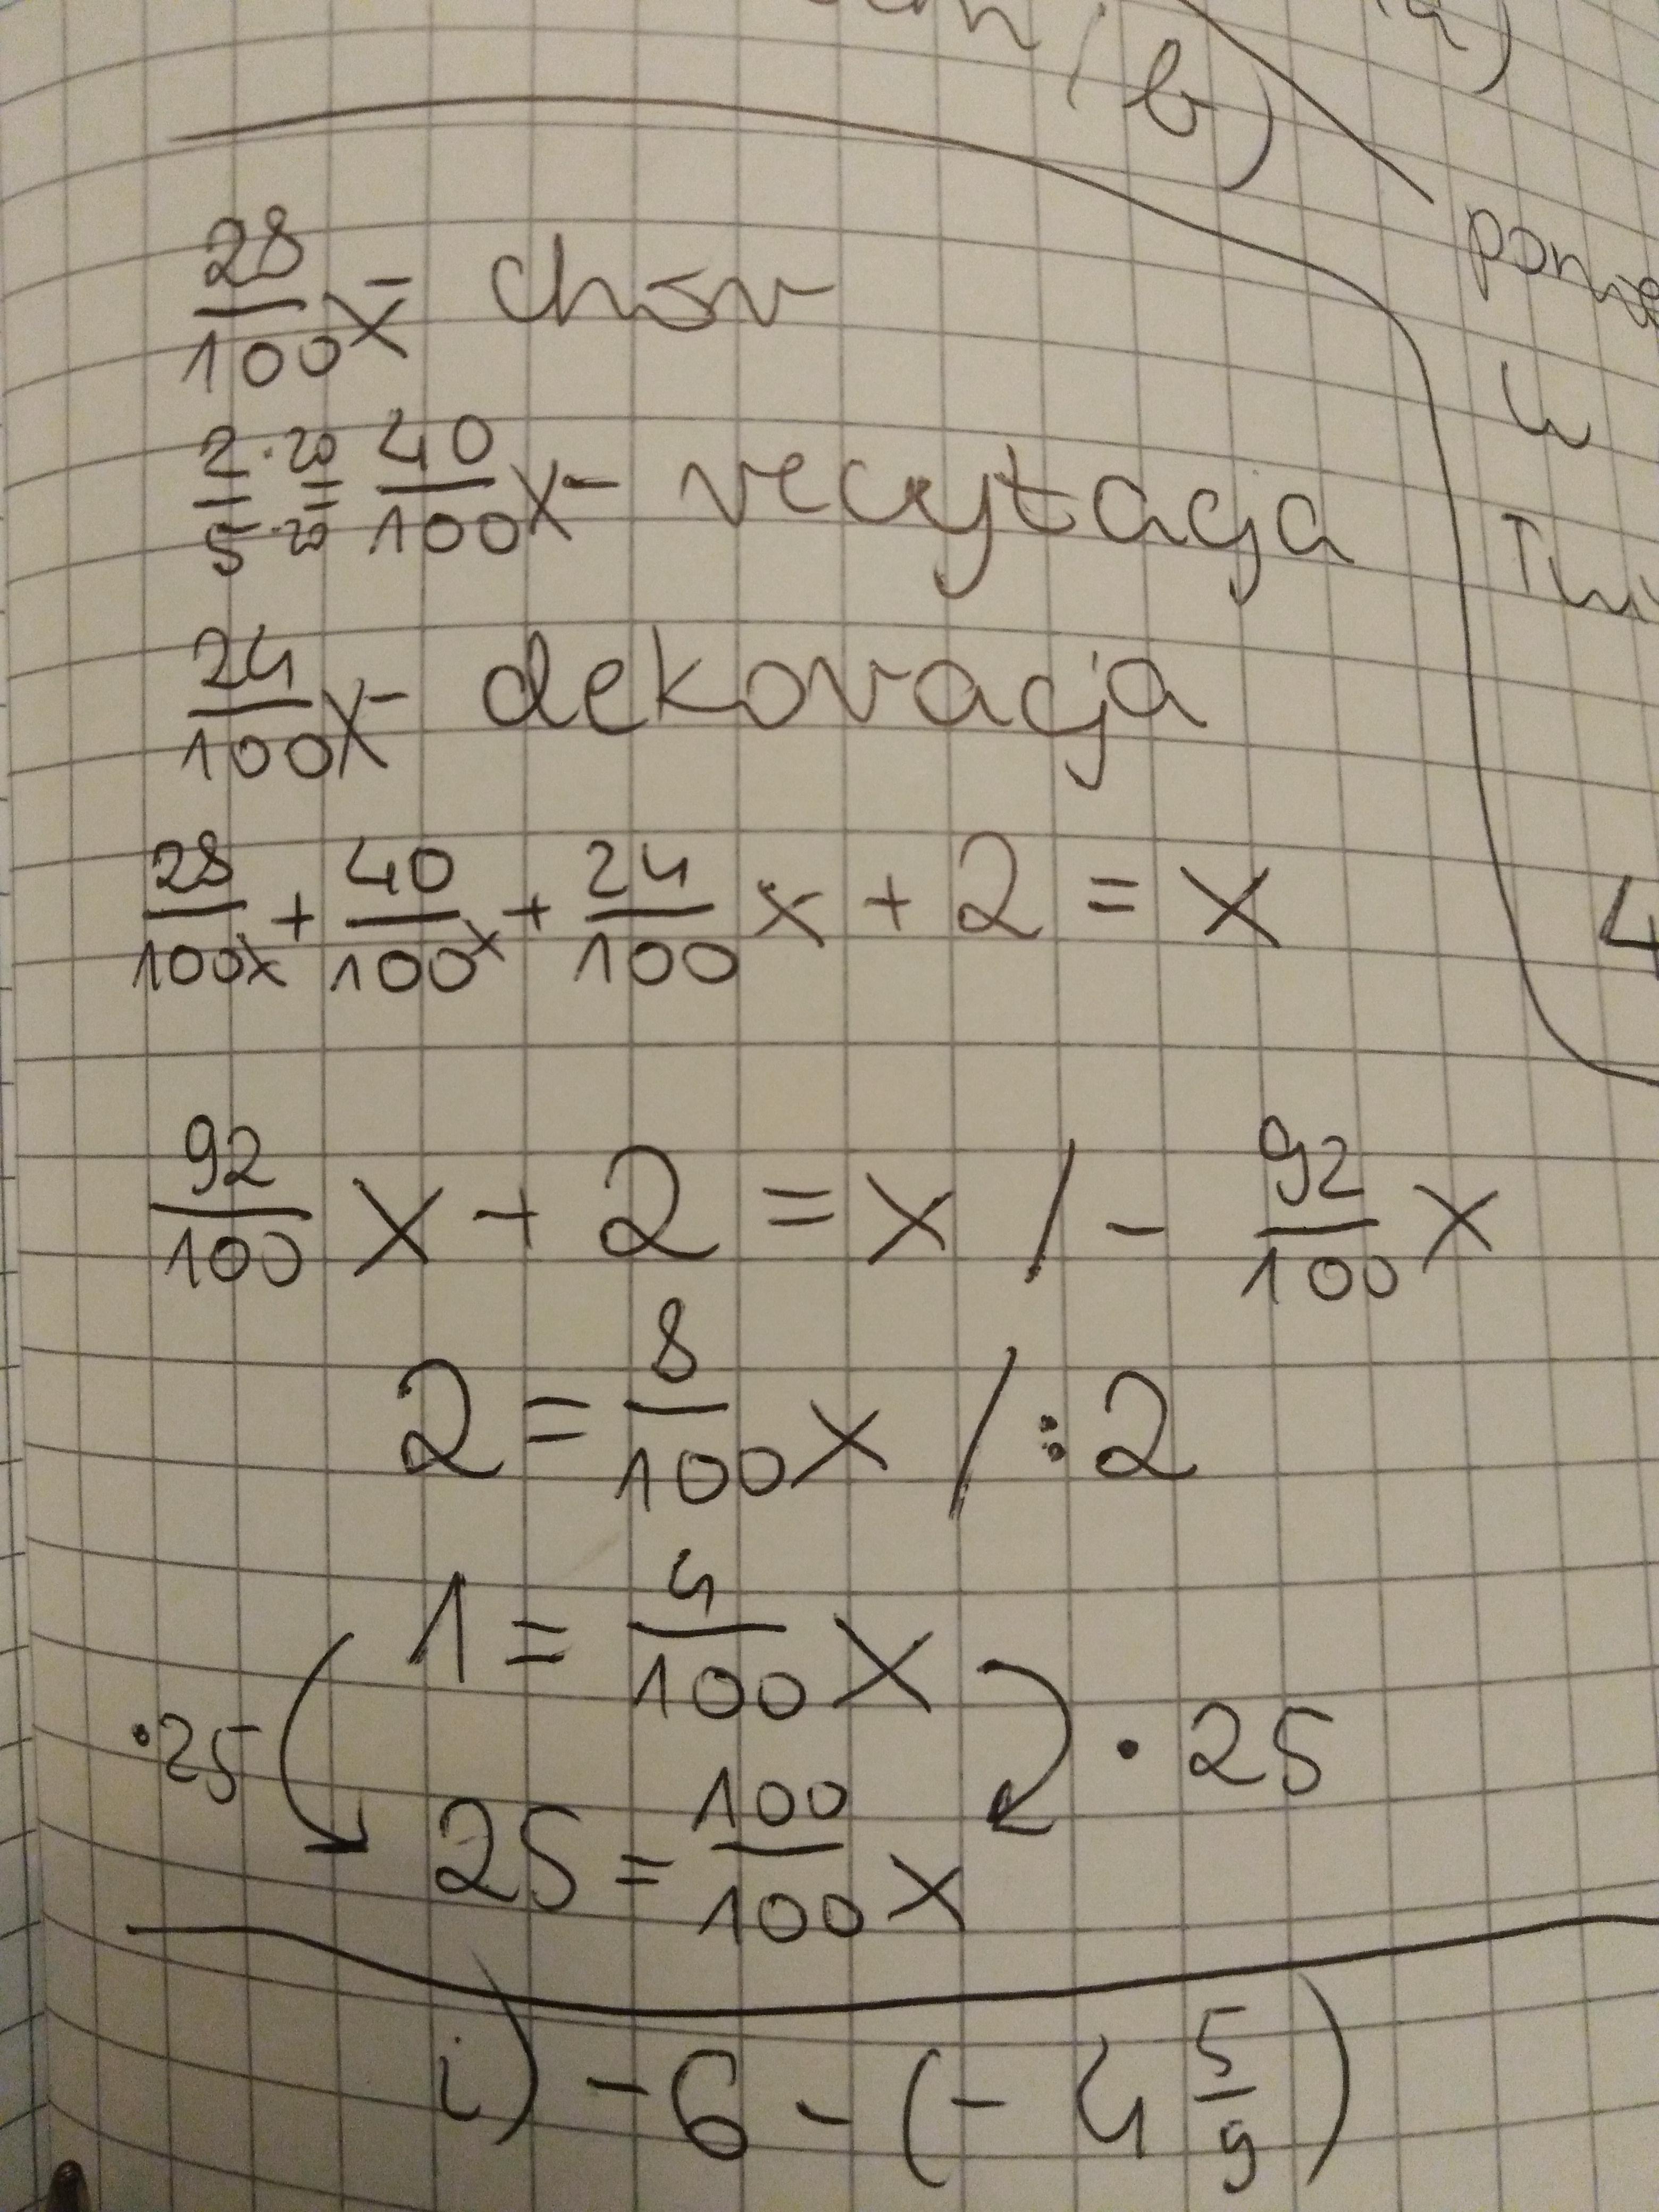 b)
28/100 x - chór
2·20/5·20 = 40/100 x - recytacja
24/100 x - dekoracja
28/100 x + 40/100 x + 24/100 x + 2 = x
92/100 x + 2 = x / - 92/100 x
2 = 8/100 x / : 2
1 = 4/100 x
·25 ·25
25 = 100/100 x
i) -6 - (-4 5/9)